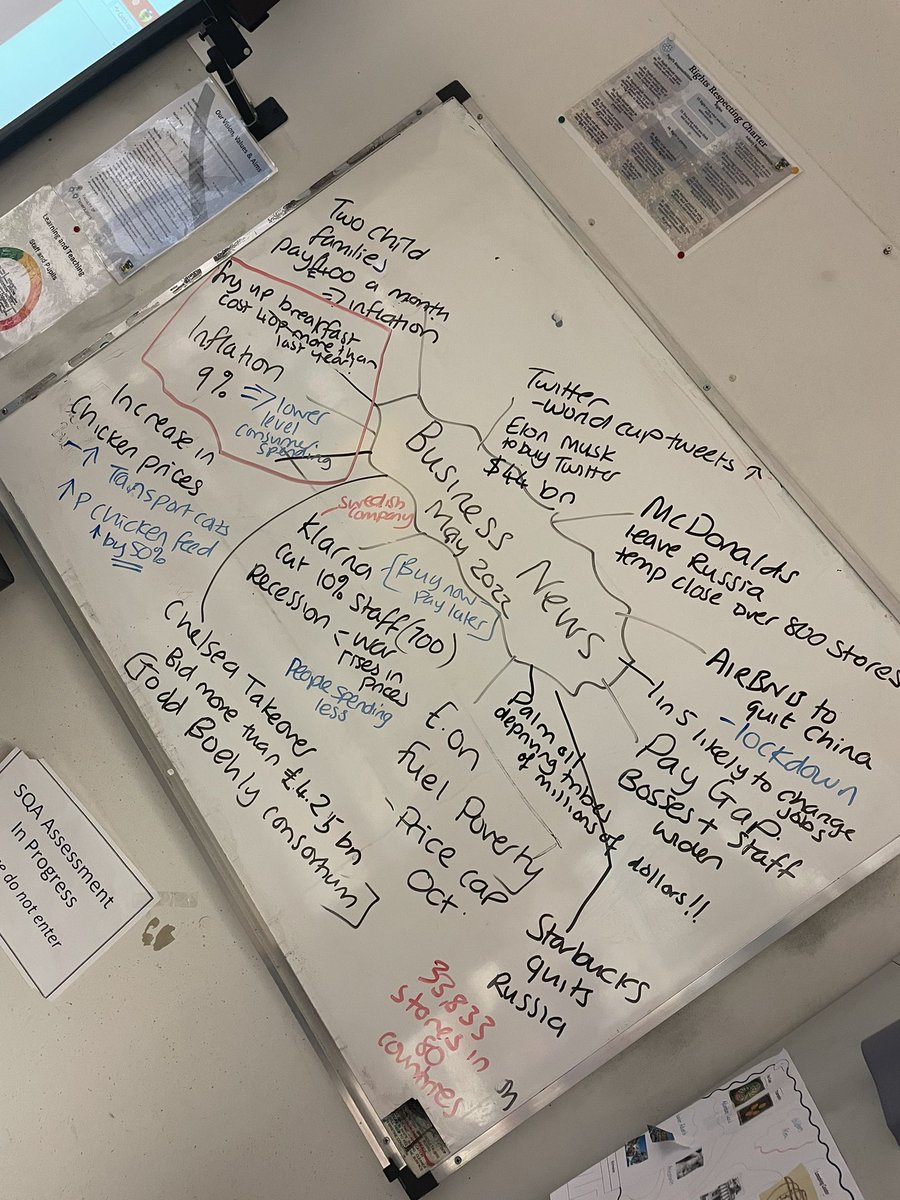 Business
News
May 2022
Two child
families
pay £400 a month
=> inflation
Fry up breakfast
cost 40p more than
last year!
Inflation
9% => lower
level
consumer
spending
Increase in
chicken prices
↑ Transport costs
↑ P chicken feed
↑ by 50%
Swedish
company
Klarna
Cut 10% staff (700)
Recession - war
rises in
prices
People spending
less
Buy now -
pay later
Chelsea Takeover
Bid more than £4.25 bn
[Todd Boehly consortium]
E.on
Fuel Poverty
- Price cap
Oct.
Palm oil
depriving tribes
of millions of
dollars!!
Starbucks
quits
Russia
33,833
stores in
80
countries
1 in 5 likely to change
jobs
Pay Gap.
Bosses + Staff
widen
AirBNB to
quit China
- lockdown
McDonalds
leave Russia
temp close over 800 stores
Twitter
- world cup tweets ↑
Elon Musk
to buy Twitter
$44 bn
Rights Respecting Charter
Our Vision, Values & Aims
Learning and Teaching
Staff and Pupils
SQA Assessment
In Progress
do not enter